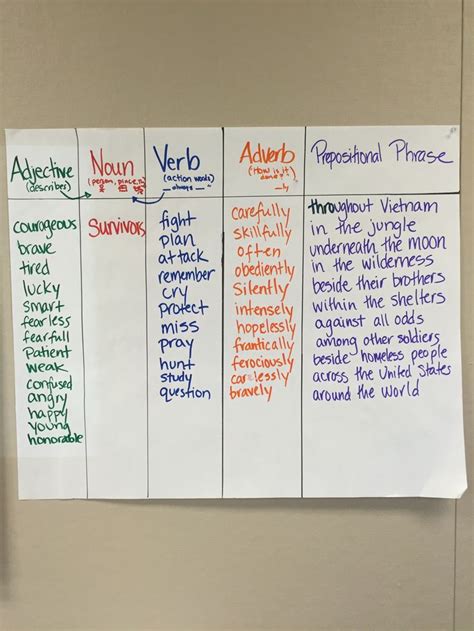 Adjective
(describes)
courageous
brave
tired
lucky
smart
fearless
fearfull
Patient
weak
confused
angry
happy
young
honorable
Noun
(person, place,
Survivors
Verb
(action words)
always
fight
plan
attack
remember
cry
protect
miss
pray
hunt
study
question
Adverb
(How is it
done?)
ly
carefully
skillfully
often
obediently
Silently
intensely
hopelessly
frantically
ferociously
carelessly
bravely
Prepositional Phrase
throughout Vietnam
in the jungle
underneath the moon
in the wilderness
beside their brothers
within the shelters
against all odds
among other soldiers
beside homeless people
across the United States
around the world